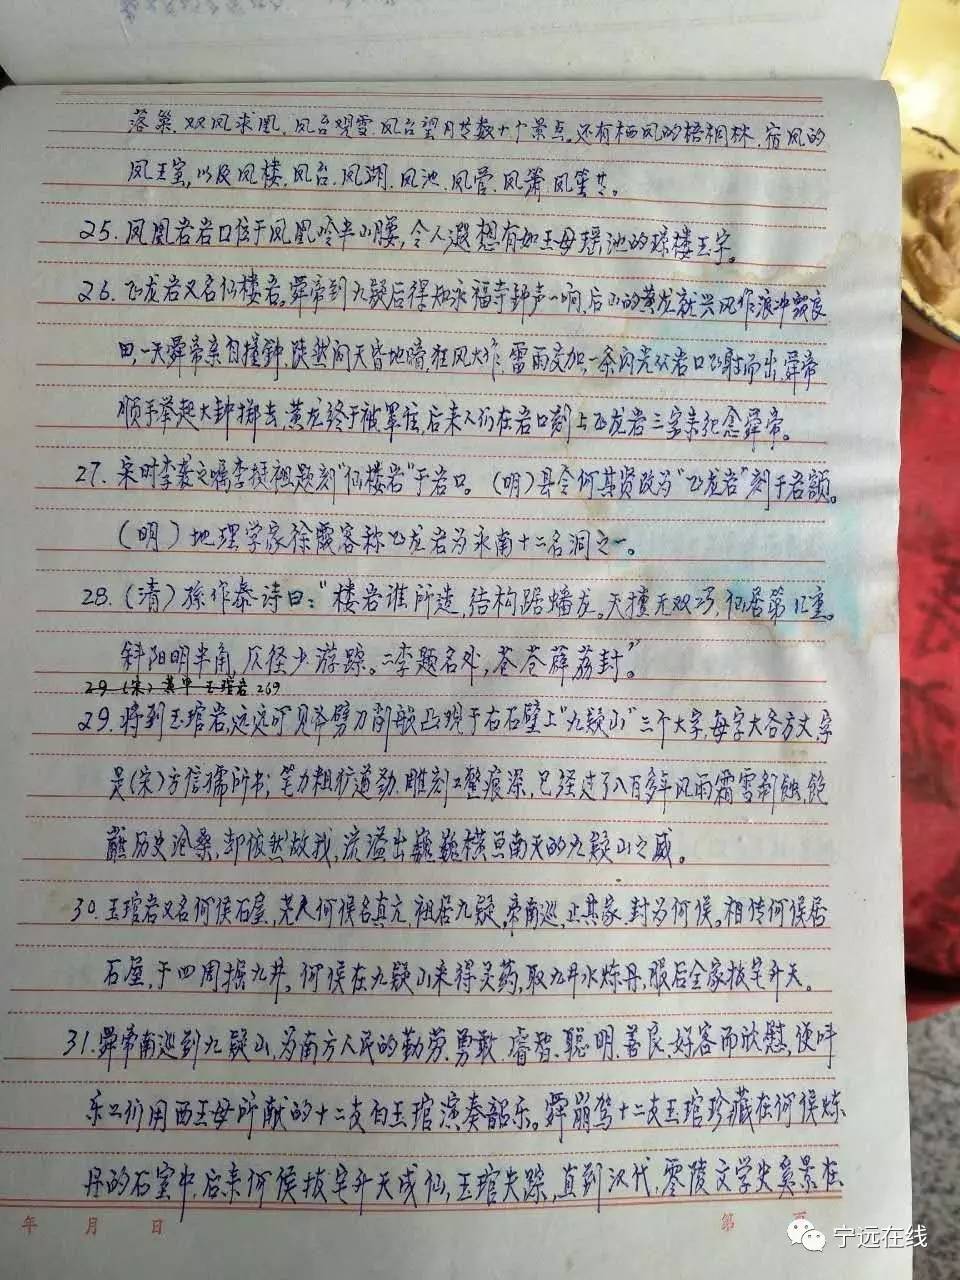 落巢、双凤求凰、凤台观雪、凤台望月等数十个景点。还有栖凤的梧桐林、宿凤的
凤王室,以及凤楼、凤台、凤湖、凤池、凤管、凤箫、凤笙等。
25.凤凰岩岩口位于凤凰岭半山腰,令人遐想有如王母瑶池的琼楼玉宇。
26.飞龙岩又名仙楼岩。舜帝到九疑后得知永福寺钟声一响,后山的黄龙就兴风作浪冲毁良
田,一天舜帝亲自撞钟,陡然间天昏地暗,狂风大作,雷雨交加,一条闪光从岩口飞射而出,舜帝
顺手举起大钟掷去,黄龙终于被罩住,后来人们在岩口刻上飞龙岩三字来纪念舜帝。
27.宋时李袭之嘱李挺祖题刻“仙楼岩”于岩口。(明)县令何其贤改为“飞龙岩”刻于岩额。
(明)地理学家徐霞客称飞龙岩为永南十二名洞之一。
28.(清)孙作泰诗曰:“楼岩谁所造,结构踞蟠龙。天撞无双巧,仙居第几重。
斜阳明半角,仄径少游踪。二李题名处,苍苍薜荔封。”
29(宋) 黄中 玉琯岩 269
29.将到玉琯岩,远远可见斧劈刀削般凸现于右石壁上“九疑山”三个大字,每字大各方丈,字
是(宋)方信孺所书,笔力粗犷遒劲,雕刻工整痕深,已经过了八百多年风雨霜雪剥蚀,饱
蘸历史沧桑,却依然故我,流溢出巍巍横亘南天的九疑山之威。
30.玉琯岩又名何侯石屋,何侯名真元,祖居九疑,帝南巡,止其家,封为何侯。相传何侯居
石屋,于四周掘九井。何侯在九疑山采得灵药,取九井水炼丹,服后全家拔宅升天。
31.舜帝南巡到九疑山,为南方人民的勤劳、勇敢、睿智、聪明、善良、好客而欣慰,便呼
乐工们用西王母所献的十二支白玉琯演奏韶乐。舜崩驾,十二支玉琯珍藏在何侯炼
丹的石室中,后来何侯拔宅升天成仙,玉琯失踪,直到汉代,零陵文学史奚景在
年 月 日 第 页
宁远在线